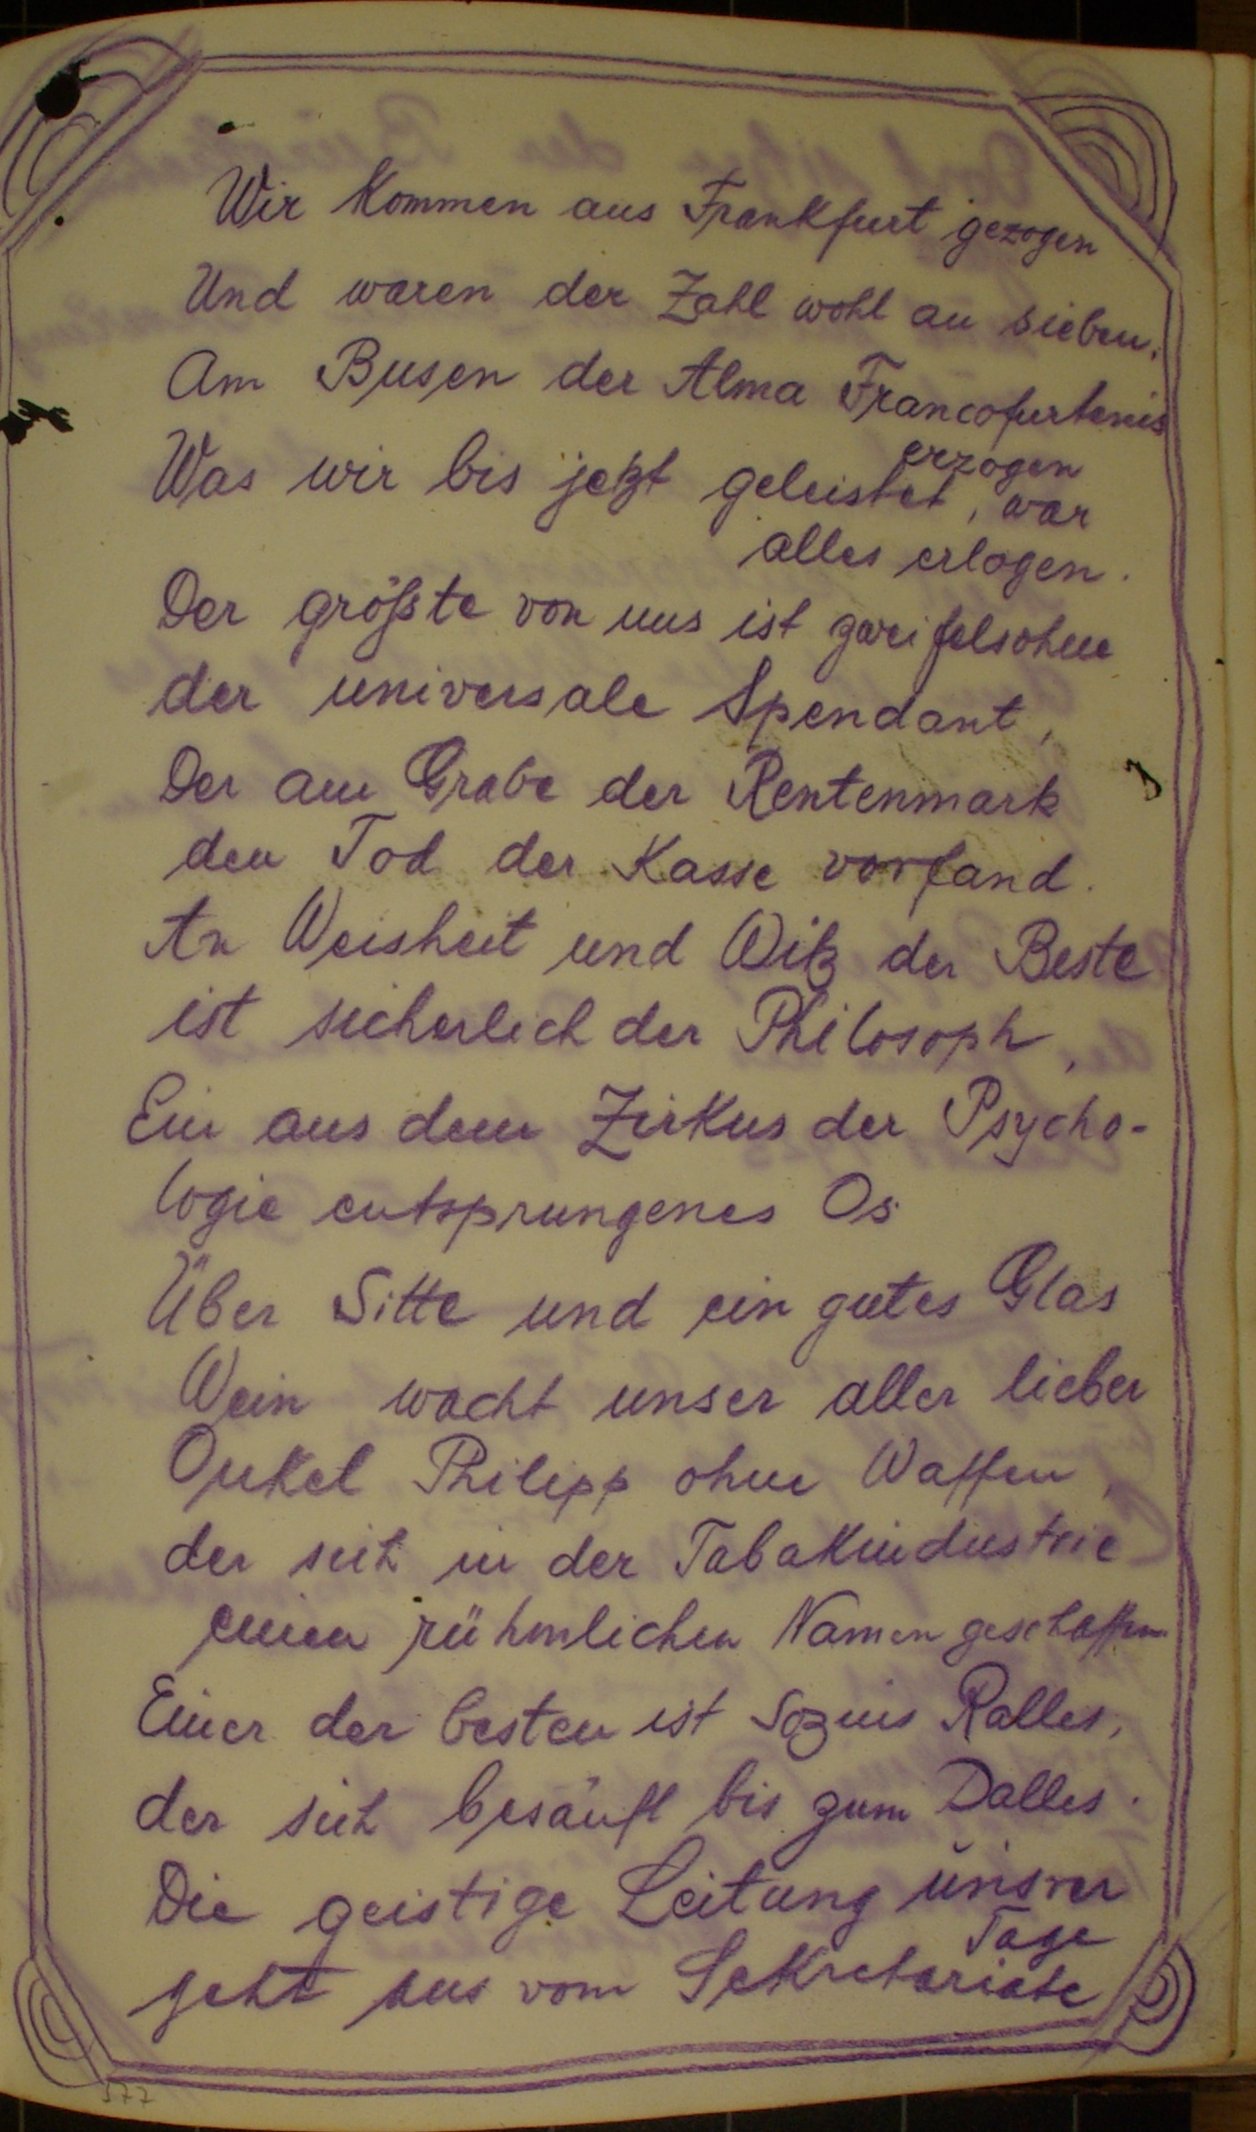 Wir kommen aus Frankfurt gezogen
Und waren der Zahl wohl an sieben.
Am Busen der Alma Francofurtenis
erzogen
Was wir bis jetzt geleistet, war
alles erlogen.
Der größte von uns ist zweifelsohne
der universale Spendant,
Der am Grabe der Rentenmark
den Tod der Kasse vorfand.
An Weisheit und Witz der Beste
ist sicherlich der Philosoph,
Ein aus dem Zirkus der Psycho-
logie entsprungenes Os
Über Sitte und ein gutes Glas
Wein wacht unser aller lieber
Onkel Philipp ohne Waffen,
der sich in der Tabakindustrie
einen rühmlichen Namen geschaffen
Einer der besten ist Sozius Ralles,
der sich besäuft bis zum Dalles.
Die geistige Leitung unsrer
Tage
geht aus vom Sekretariate
577